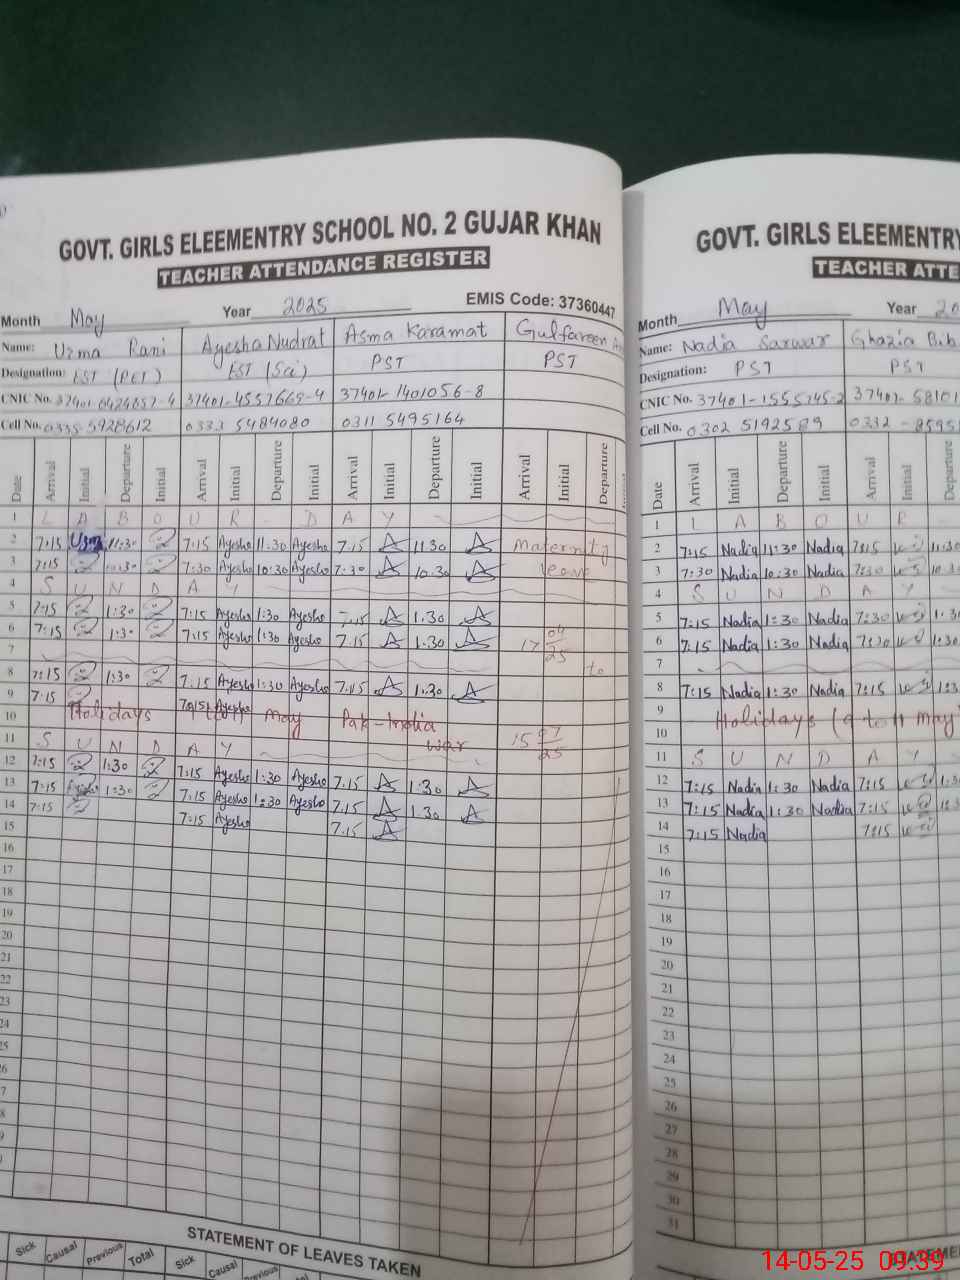 GOVT. GIRLS ELEEMENTRY SCHOOL NO. 2 GUJAR KHAN
TEACHER ATTENDANCE REGISTER
Month May Year 2025 EMIS Code: 37360447
Name: Uzma Rani Ayesha Nudrat Asma Karamat Gulfareen
Designation: EST (PET) EST (Sci) PST PST
CNIC No. 37401-4557669-4 37401-1401056-8
Cell No. 0335 5928612 0333 5484080 0311 5495164
Date Arrival Initial Departure Initial Arrival Initial Departure Initial Arrival Initial Departure Initial Arrival Initial Departure
1 L A B O U R D A Y
2 7:15 Uzma 11:30 7:15 Ayesha 11:30 Ayesha 7.15 A 11.30 A Maternity
3 7:15 10:30 7:30 Ayesha 10:30 Ayesha 7.30 A 10.30 A leave
4 S U N D A Y
5 7:15 1:30 7:15 Ayesha 1:30 Ayesha 7.15 A 1.30 A
6 7:15 1:30 7:15 Ayesha 1:30 Ayesha 7.15 A 1.30 A 17 04 25
7 to
8 7:15 1:30 7:15 Ayesha 1:30 Ayesha 7.15 A 1.30 A
9 7:15 7:15 Ayesha
10 Holidays 9 to 11 may Pak-India war 15 07 25
11 S U N D A Y
12 7:15 1:30 7:15 Ayesha 1:30 Ayesha 7.15 A 1.30 A
13 7:15 1:30 7:15 Ayesha 1:30 Ayesha 7.15 A 1.30 A
14 7:15 7:15 Ayesha 7.15 A
15
16
17
18
19
20
21
22
23
24
25
STATEMENT OF LEAVES TAKEN
Sick Causal Previous Total Sick Causal Previous Total
GOVT. GIRLS ELEEMENTRY
TEACHER ATTE
Month May Year 20
Name: Nadia Sarwar Ghazia Bib
Designation: PST PST
CNIC No. 37401-1555745-2 37401-58101
Cell No. 0302 5192589 0332-8595
Date Arrival Initial Departure Initial Arrival Initial
1 L A B O U R
2 7:15 Nadia 11:30 Nadia 7:15 11:30
3 7:30 Nadia 10:30 Nadia 7:30 10:30
4 S U N D A Y
5 7:15 Nadia 1:30 Nadia 7:30 1:30
6 7:15 Nadia 1:30 Nadia 7:30 1:30
7
8 7:15 Nadia 1:30 Nadia 7:15
9 Holidays (9 to 11 may)
10
11 S U N D A Y
12 7:15 Nadia 1:30 Nadia 7:15
13 7:15 Nadia 1:30 Nadia 7:15
14 7:15 Nadia 7:15
15
16
17
18
19
20
21
22
23
24
25
26
27
28
29
30
31
14-05-25 09:39